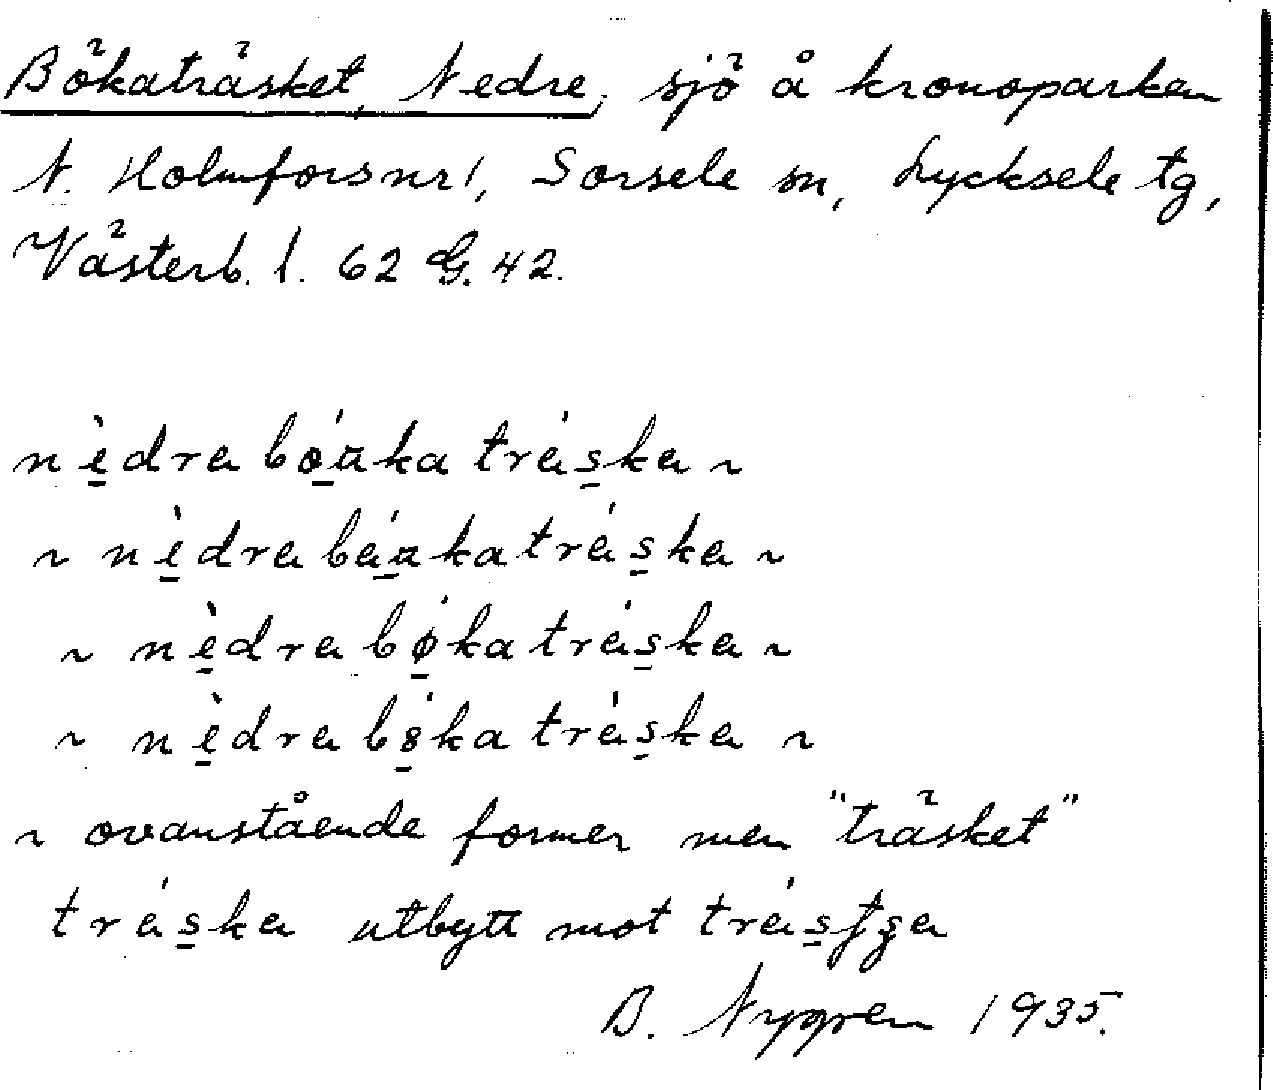 Bökaträsket, Nedre, sjö å kronoparken
N. Holmfors nr 1, Sorsele sn, Lycksele tg,
Västerb. l. 62 G. 42.
nèdra bóuka tráska ~
~ nèdra báuka tráska ~
~ nèdra bǿka tráska ~
~ nèdra bóka tráska ~
~ ovanstående former men "träsket"
tráska utbytt mot
B. Nygren 1935.